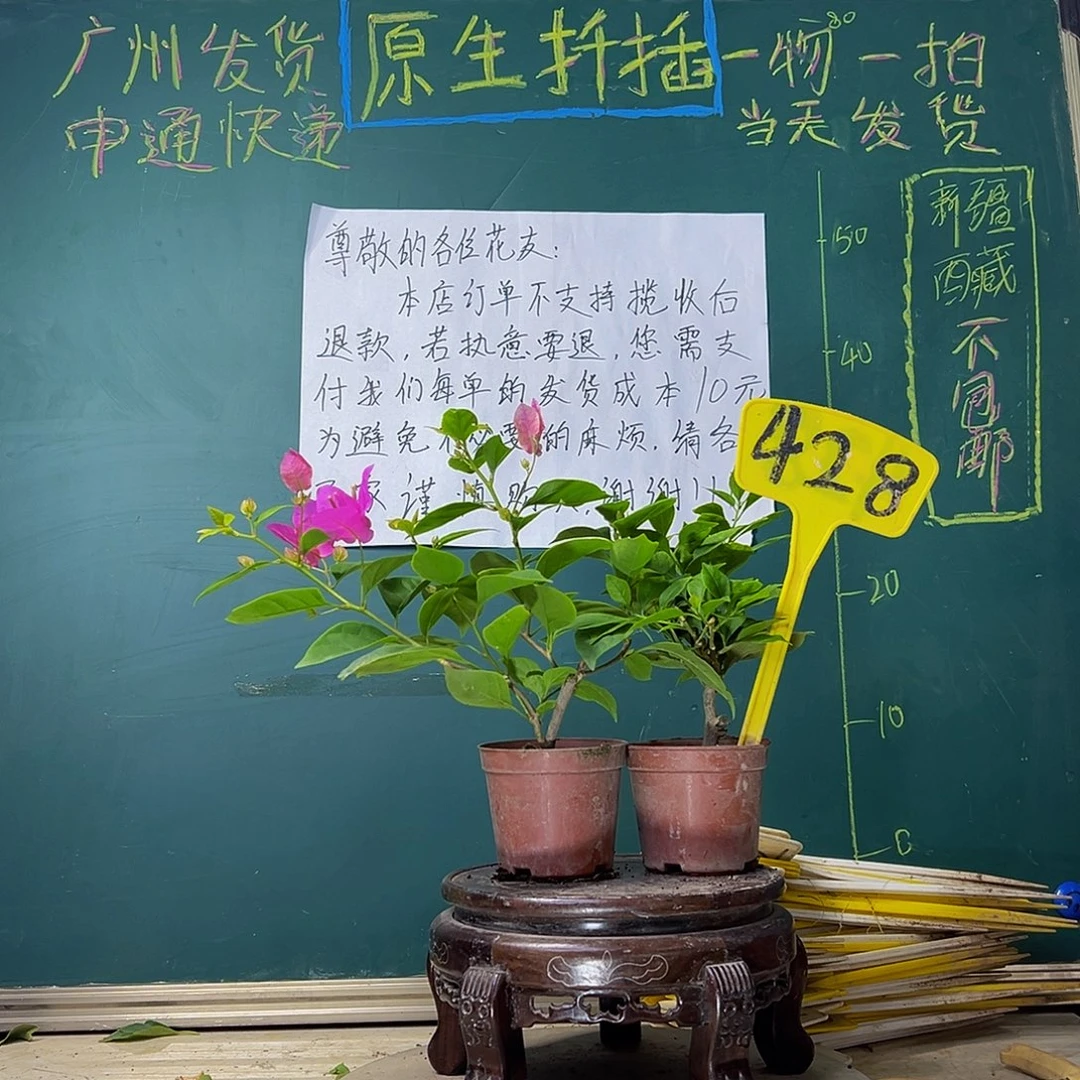 广州发货
申通快递
原生扦插
一物一拍
80
当天发货
尊敬的各位花友:
本店订单不支持揽收后
退款,若执意要退,您需支
付我们每单的发货成本10元
为避免不必要的麻烦.请各
谨慎 谢谢!
428
50
40
20
10
0
新疆
西藏
不包邮